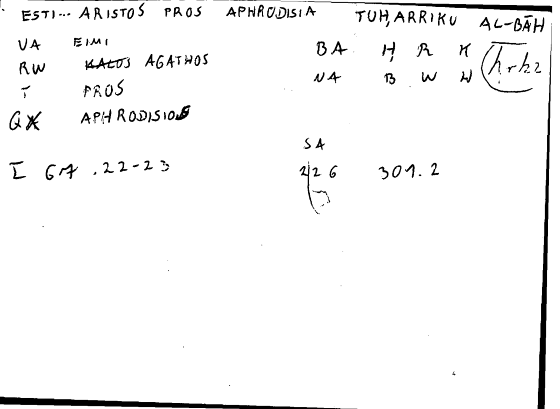 ESTI... ARISTOS PROS APHRODISIA TUH,ARRIKU AL-BĀH
VA EIMI BA H, R K
RW KALOS AGATHOS NA B W W
T PROS
GX APHRODISIOS
I 67 .22-23 SA 226 301.2